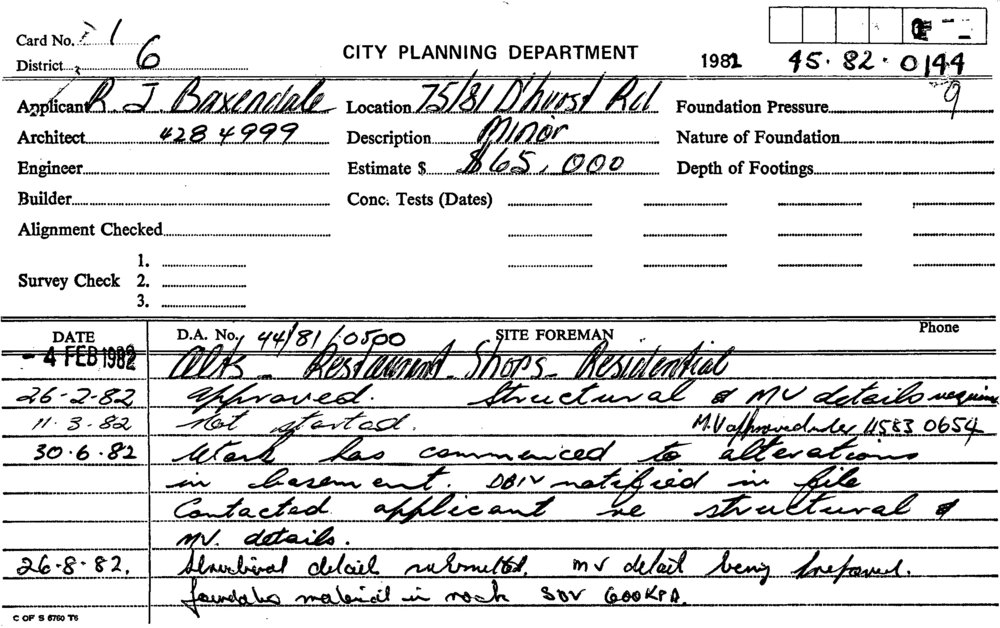 Card No. 1
District 6
CITY PLANNING DEPARTMENT
1982 45·82·0144
9
Applicant R. J. Baxendale Location 75/81 D'hurst Rd Foundation Pressure
Architect 428 4999 Description Minor Nature of Foundation
Engineer Estimate $ $65,000 Depth of Footings
Builder Conc. Tests (Dates)
Alignment Checked
1.
Survey Check 2.
3.
DATE D.A. No. 44/81/0500 SITE FOREMAN Phone
- 4 FEB 1982 Alts - Restaurant - Shops - Residential
26-2-82 approved. Structural & MV details require
11.3.82 Not started. M.V approved under 4583 0654
30.6.82 Work has commenced to alterations
in basement. DBIV notified in file
Contacted applicant re structural &
MV. details.
26-8-82. Structural detail submitted. MV detail being prepared.
foundation material in rock SDV 600KPA.
C OF S 8760 T6